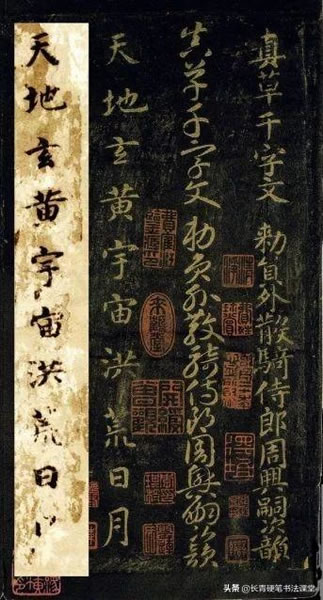 真草千字文 勅員外散騎侍郎周興嗣次韻
真草千字文 勅員外散騎侍郎周興嗣次韻
天地玄黄宇宙洪荒日月
天地玄黄宇宙洪荒日
头条 @长青硬笔书法课堂